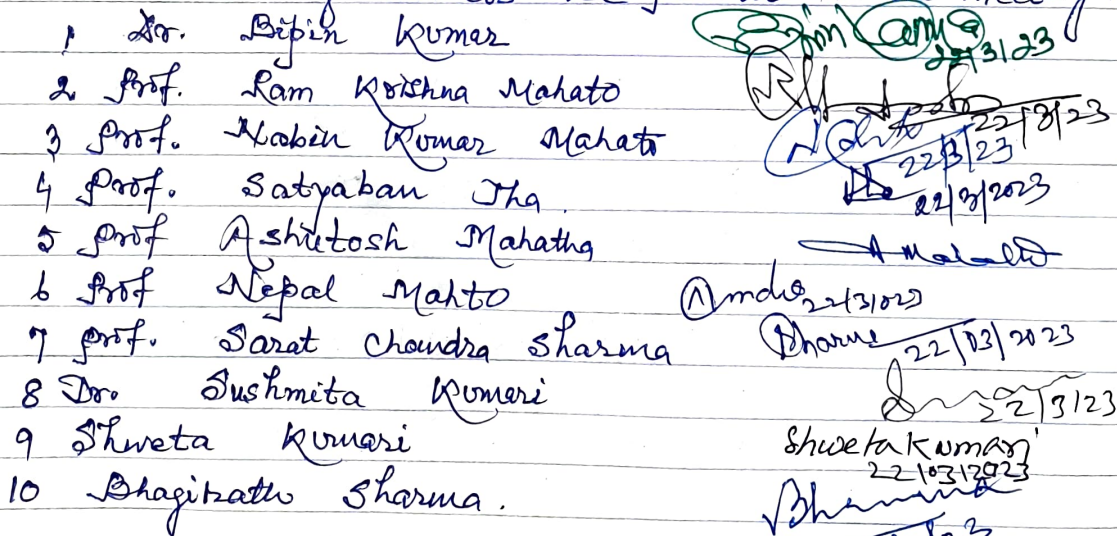 1 Dr. Bipin Kumar 22/3/23
2 Prof. Ram Krishna Mahato 22/3/23
3 Prof. Nabin Kumar Mahato 22/3/23
4 Prof. Satyaban Jha. 22/3/2023
5 Prof Ashutosh Mahatha A Mahatha
6 Prof Nepal Mahto 22/3/023
7 Prof. Sarat Chandra Sharma Sharma 22/03/2023
8 Dr. Sushmita Kumari 22/3/23
9 Shweta Kumari Shweta Kumari
22/03/2023
10 Bhagirath Sharma.